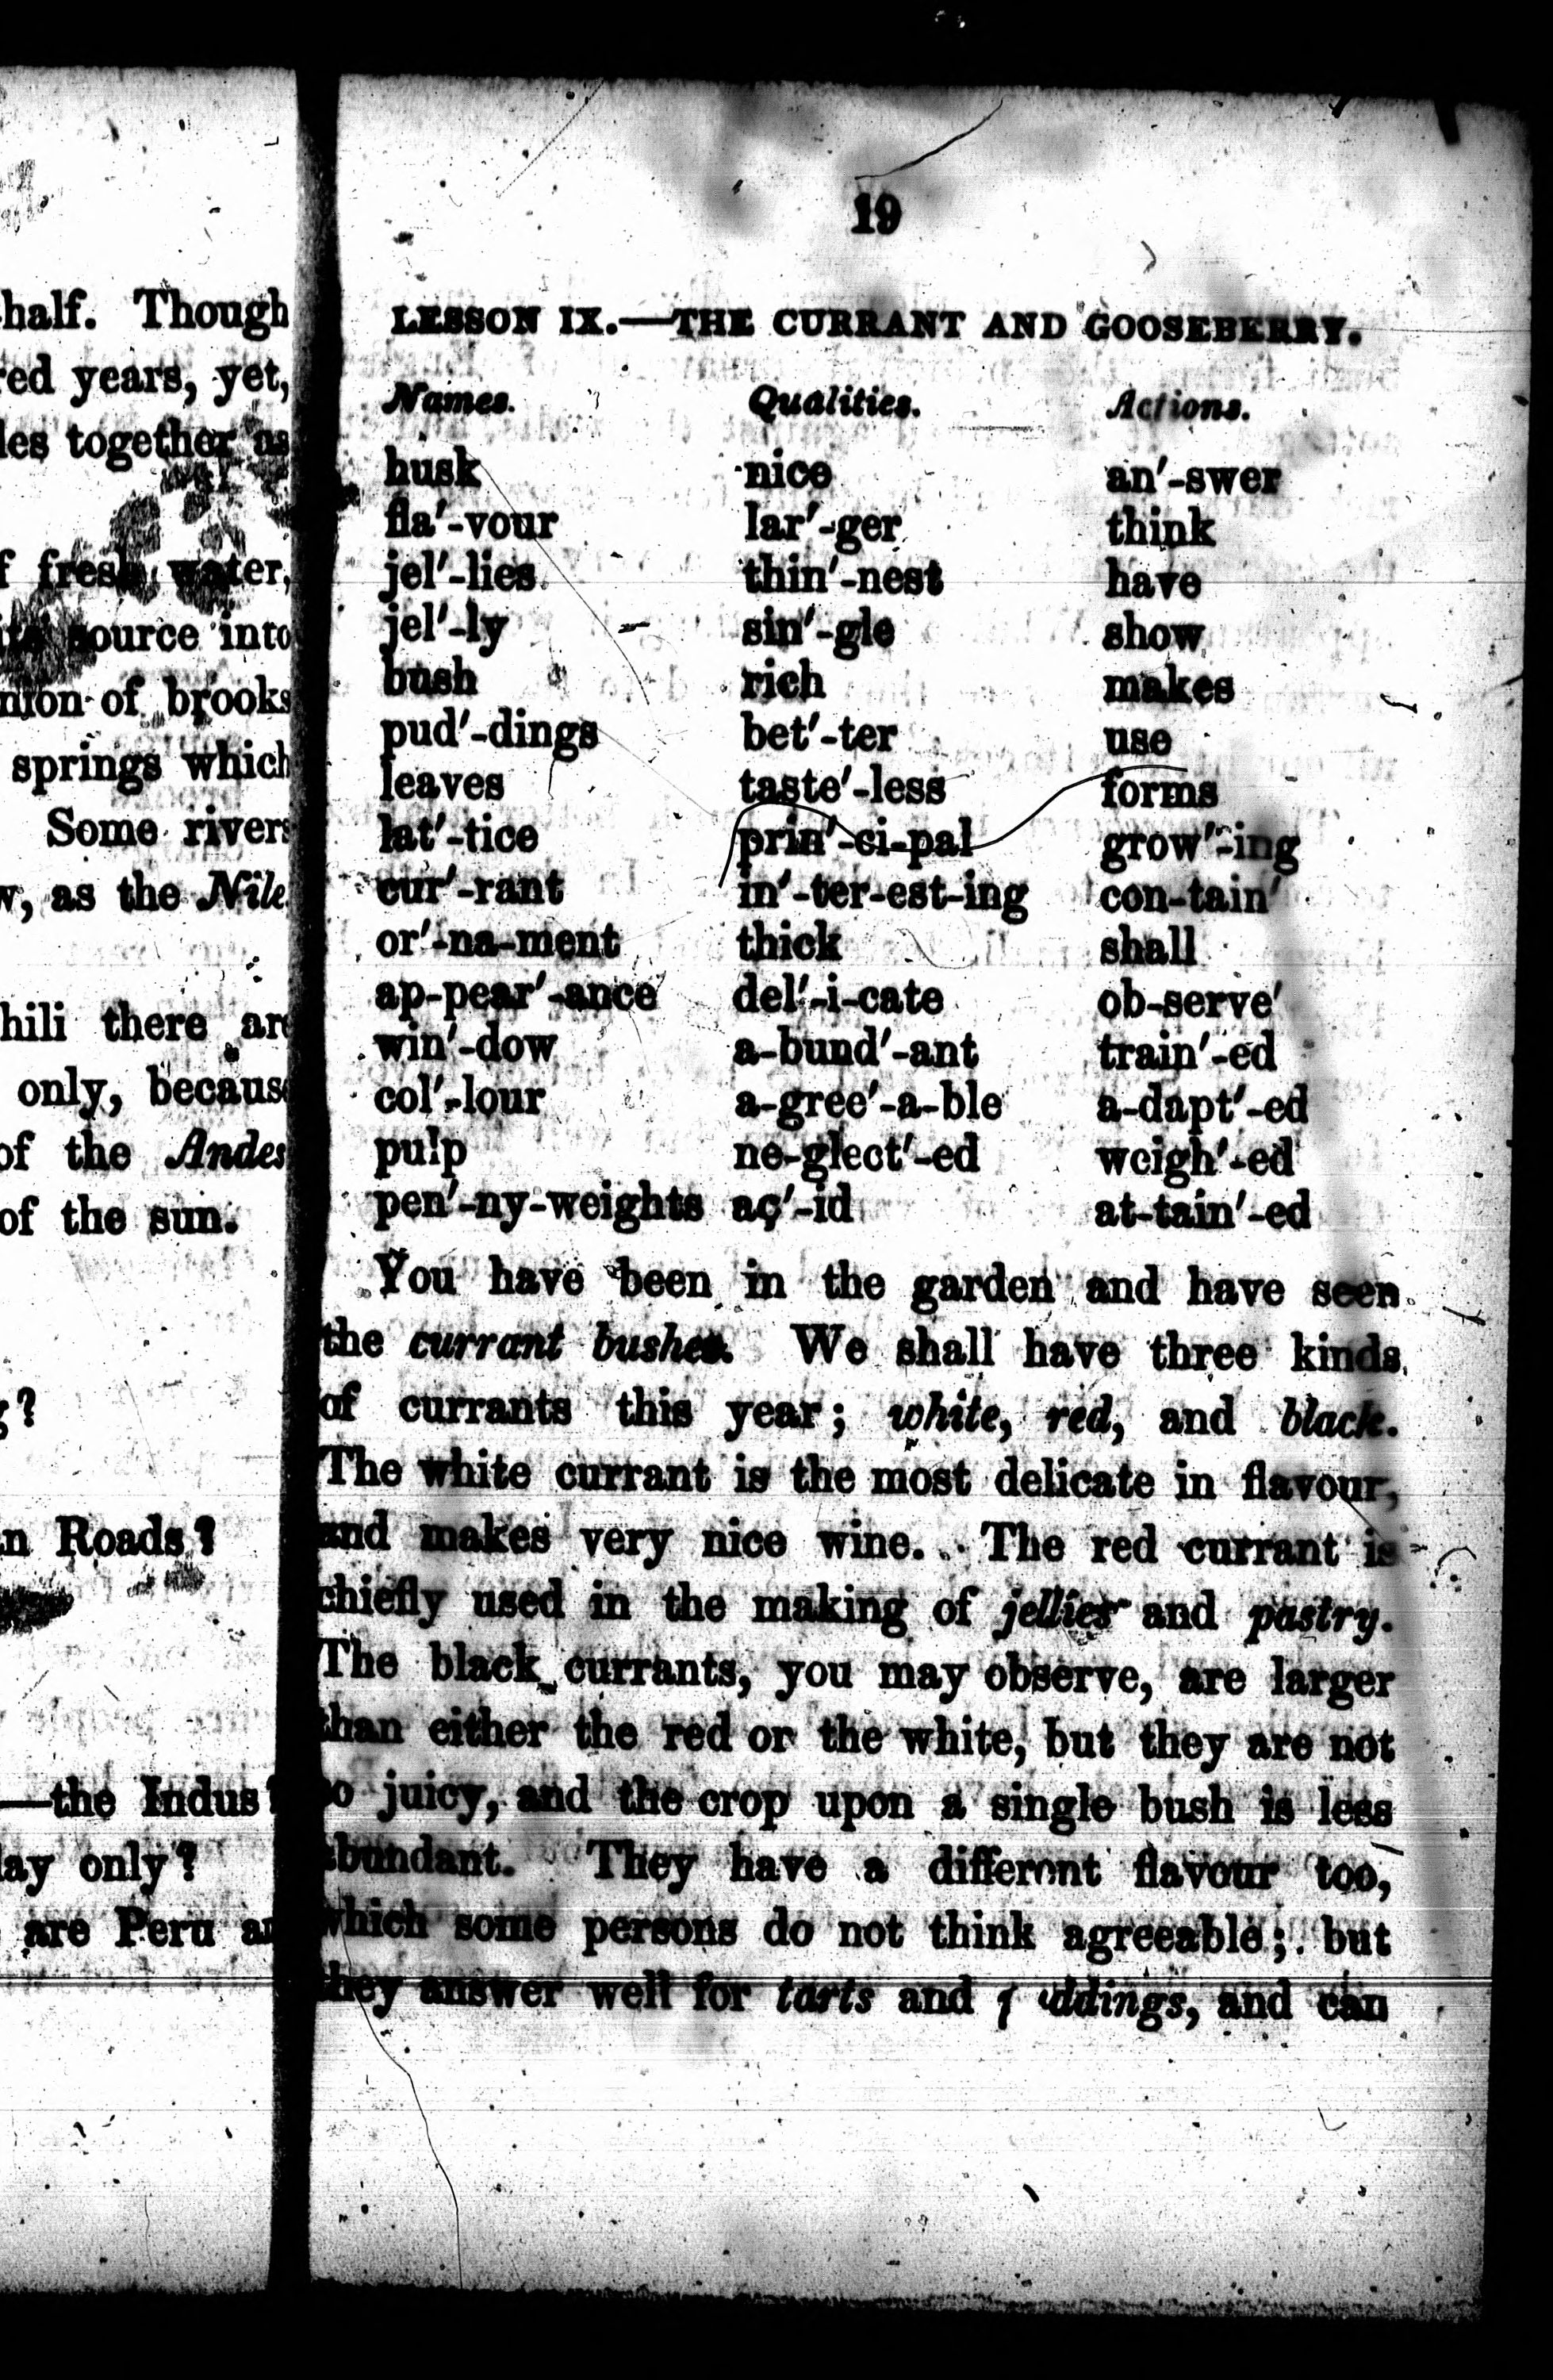 half. Though
years, yet,
together as
fresh water,
source into
of brooks
springs which
Some rivers
as the Nile
there are
only, because
of the Andes
of the sun.
Roads?
—the Indus?
only?
are Peru
19
LESSON IX.—THE CURRANT AND GOOSEBERRY.
Names. Qualities. Actions.
husk nice an'-swer
fla'-vour lar'-ger think
jel'-lies thin'-nest have
jel'-ly sin'-gle show
bush rich makes
pud'-dings bet'-ter use
leaves taste'-less forms
lat'-tice prin'-ci-pal grow'-ing
cur'-rant in'-ter-est-ing con-tain'
or'-na-ment thick shall
ap-pear'-ance del'-i-cate ob-serve'
win'-dow a-bund'-ant train'-ed
col'-lour a-gree'-a-ble a-dapt'-ed
pulp ne-glect'-ed weigh'-ed
pen'-ny-weights aç'-id at-tain'-ed
You have been in the garden and have seen
the currant bushes. We shall have three kinds
of currants this year; white, red, and black.
The white currant is the most delicate in flavour,
and makes very nice wine. The red currant is
chiefly used in the making of jellies and pastry.
The black currants, you may observe, are larger
than either the red or the white, but they are not
so juicy, and the crop upon a single bush is less
abundant. They have a different flavour too,
which some persons do not think agreeable; but
they answer well for tarts and puddings, and can